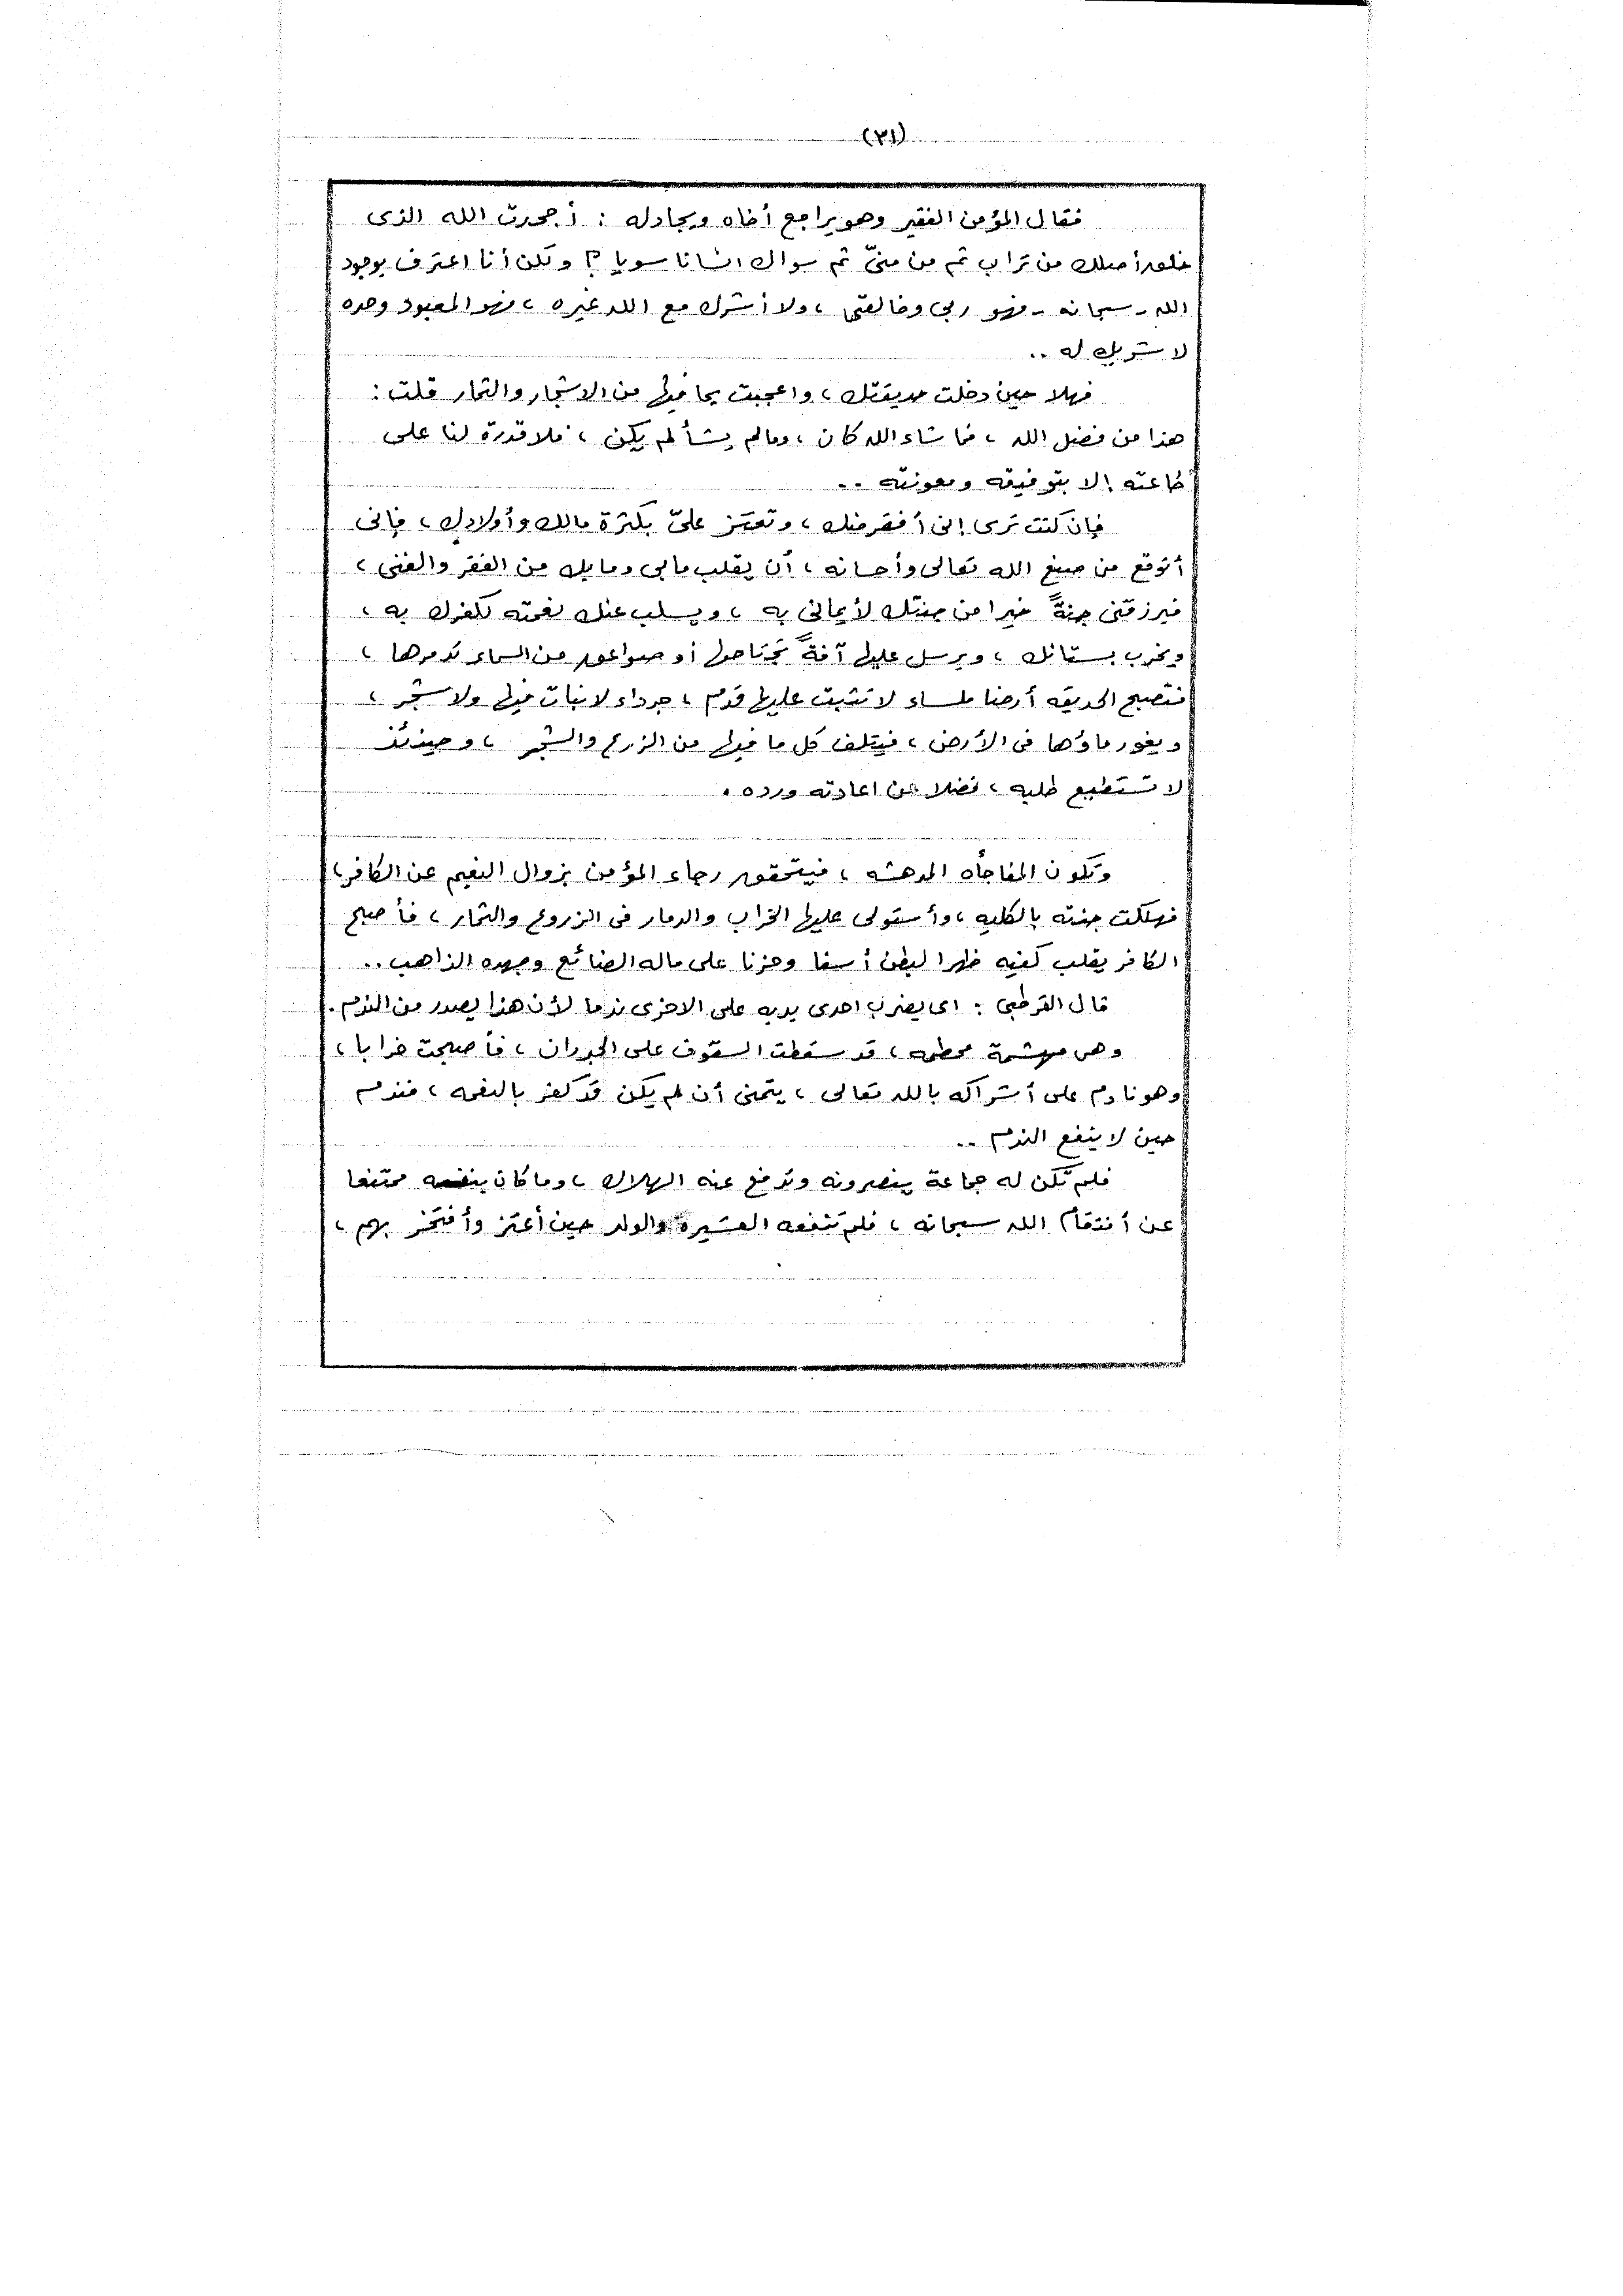 (٣١)
فقال المؤمن الفقير وهو يراجع أخاه ويجادله : أجحدت الله الذى
خلق أصلك من تراب ثم من منىّ ثم سواك انسانا سويا ؟ ولكن أنا اعترف بوجود
الله - سبحانه - فهو ربى وخالقى ، ولا أشرك مع الله غيره ، فهو المعبود وحده
لا شريك له ..
فهلا حين دخلت حديقتك ، واعجبت بما فيها من الاشجار والثمار قلت :
هذا من فضل الله ، فما شاء الله كان ، ومالم يشأ لم يكن ، فلا قدرة لنا على
طاعته إلا بتوفيقه ومعونته ..
فإن كنت ترى إنى أفقر منك ، وتعتز علىّ بكثرة مالك وأولادك ، فإنى
أتوقع من صنع الله تعالى وأحسانه ، أن يقلب مابى ومابك من الفقر والغنى ،
فيرزقنى جنةً خيرا من جنتك لأيمانى به ، ويسلب عنك نعمته لكفرك به ،
ويخرب بستانك ، ويرسل عليها آفةً تجتاحها أو صواعق من السماء تدمرها ،
فتصبح الحديقه أرضا ملساء لا تثبت عليها قدم ، جرداء لانبات فيها ولا شجر ،
ويغور ماؤها فى الأرض ، فيتلف كل ما فيها من الزرع والشجر ، وحينئذ
لا تستطيع طلبه ، فضلا عن اعادته ورده .
وتكون المفاجأه المدهشه ، فيتحقق رجاء المؤمن بزوال النعيم عن الكافر ،
فهلكت جنته بالكليه ، وأستولى عليها الخراب والدمار فى الزروع والثمار ، فأصبح
الكافر يقلب كفيه ظهرا لبطن أسفا وحزنا على ماله الضائع وجهده الذاهب ..
قال القرطبى : اى يضرب احدى يديه على الاخرى ندما لأن هذا يصدر من الندم .
وهى مهشمة محطمه ، قد سقطت السقوف على الجدران ، فأصبحت خرابا ،
وهو نادم على أشراكه بالله تعالى ، يتمنى أن لم يكن قد كفر بالنعمه ، فندم
حين لا ينفع الندم ..
فلم تكن له جماعة ينصرونه وتدفع عنه الهلاك ، وما كان بنفسه ممتنعا
عن أنتقام الله سبحانه ، فلم تنفعه العشيرة والولد حين أعتز وأفتخر بهم ،